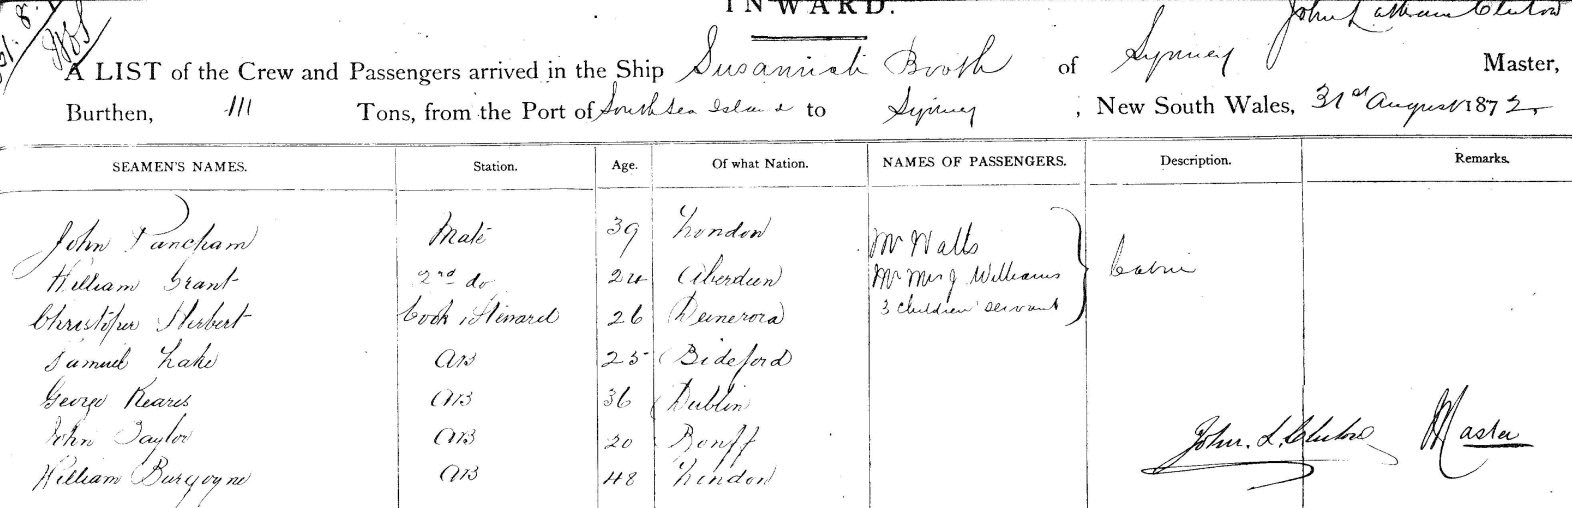 INWARD.
A LIST of the Crew and Passengers arrived in the Ship Susannah Booth of Sydney John Latham Clulow Master,
Burthen, 111 Tons, from the Port of South Sea Island to Sydney, New South Wales, 31st August 1872
SEAMEN'S NAMES. Station. Age. Of what Nation. NAMES OF PASSENGERS. Description. Remarks.
John Mate 39 London Mr Watts
William Grant 2nd do 24 Aberdeen Mr Mrs J Williams Cabin
Christopher Herbert Cook, Steward 26 Demerora 3 children servant
Samuel Lake AB 25 Bideford
George AB 36 Dublin
John Taylor AB 20 Banff John. L. Clulow Master
William Burgoyne AB 48 London